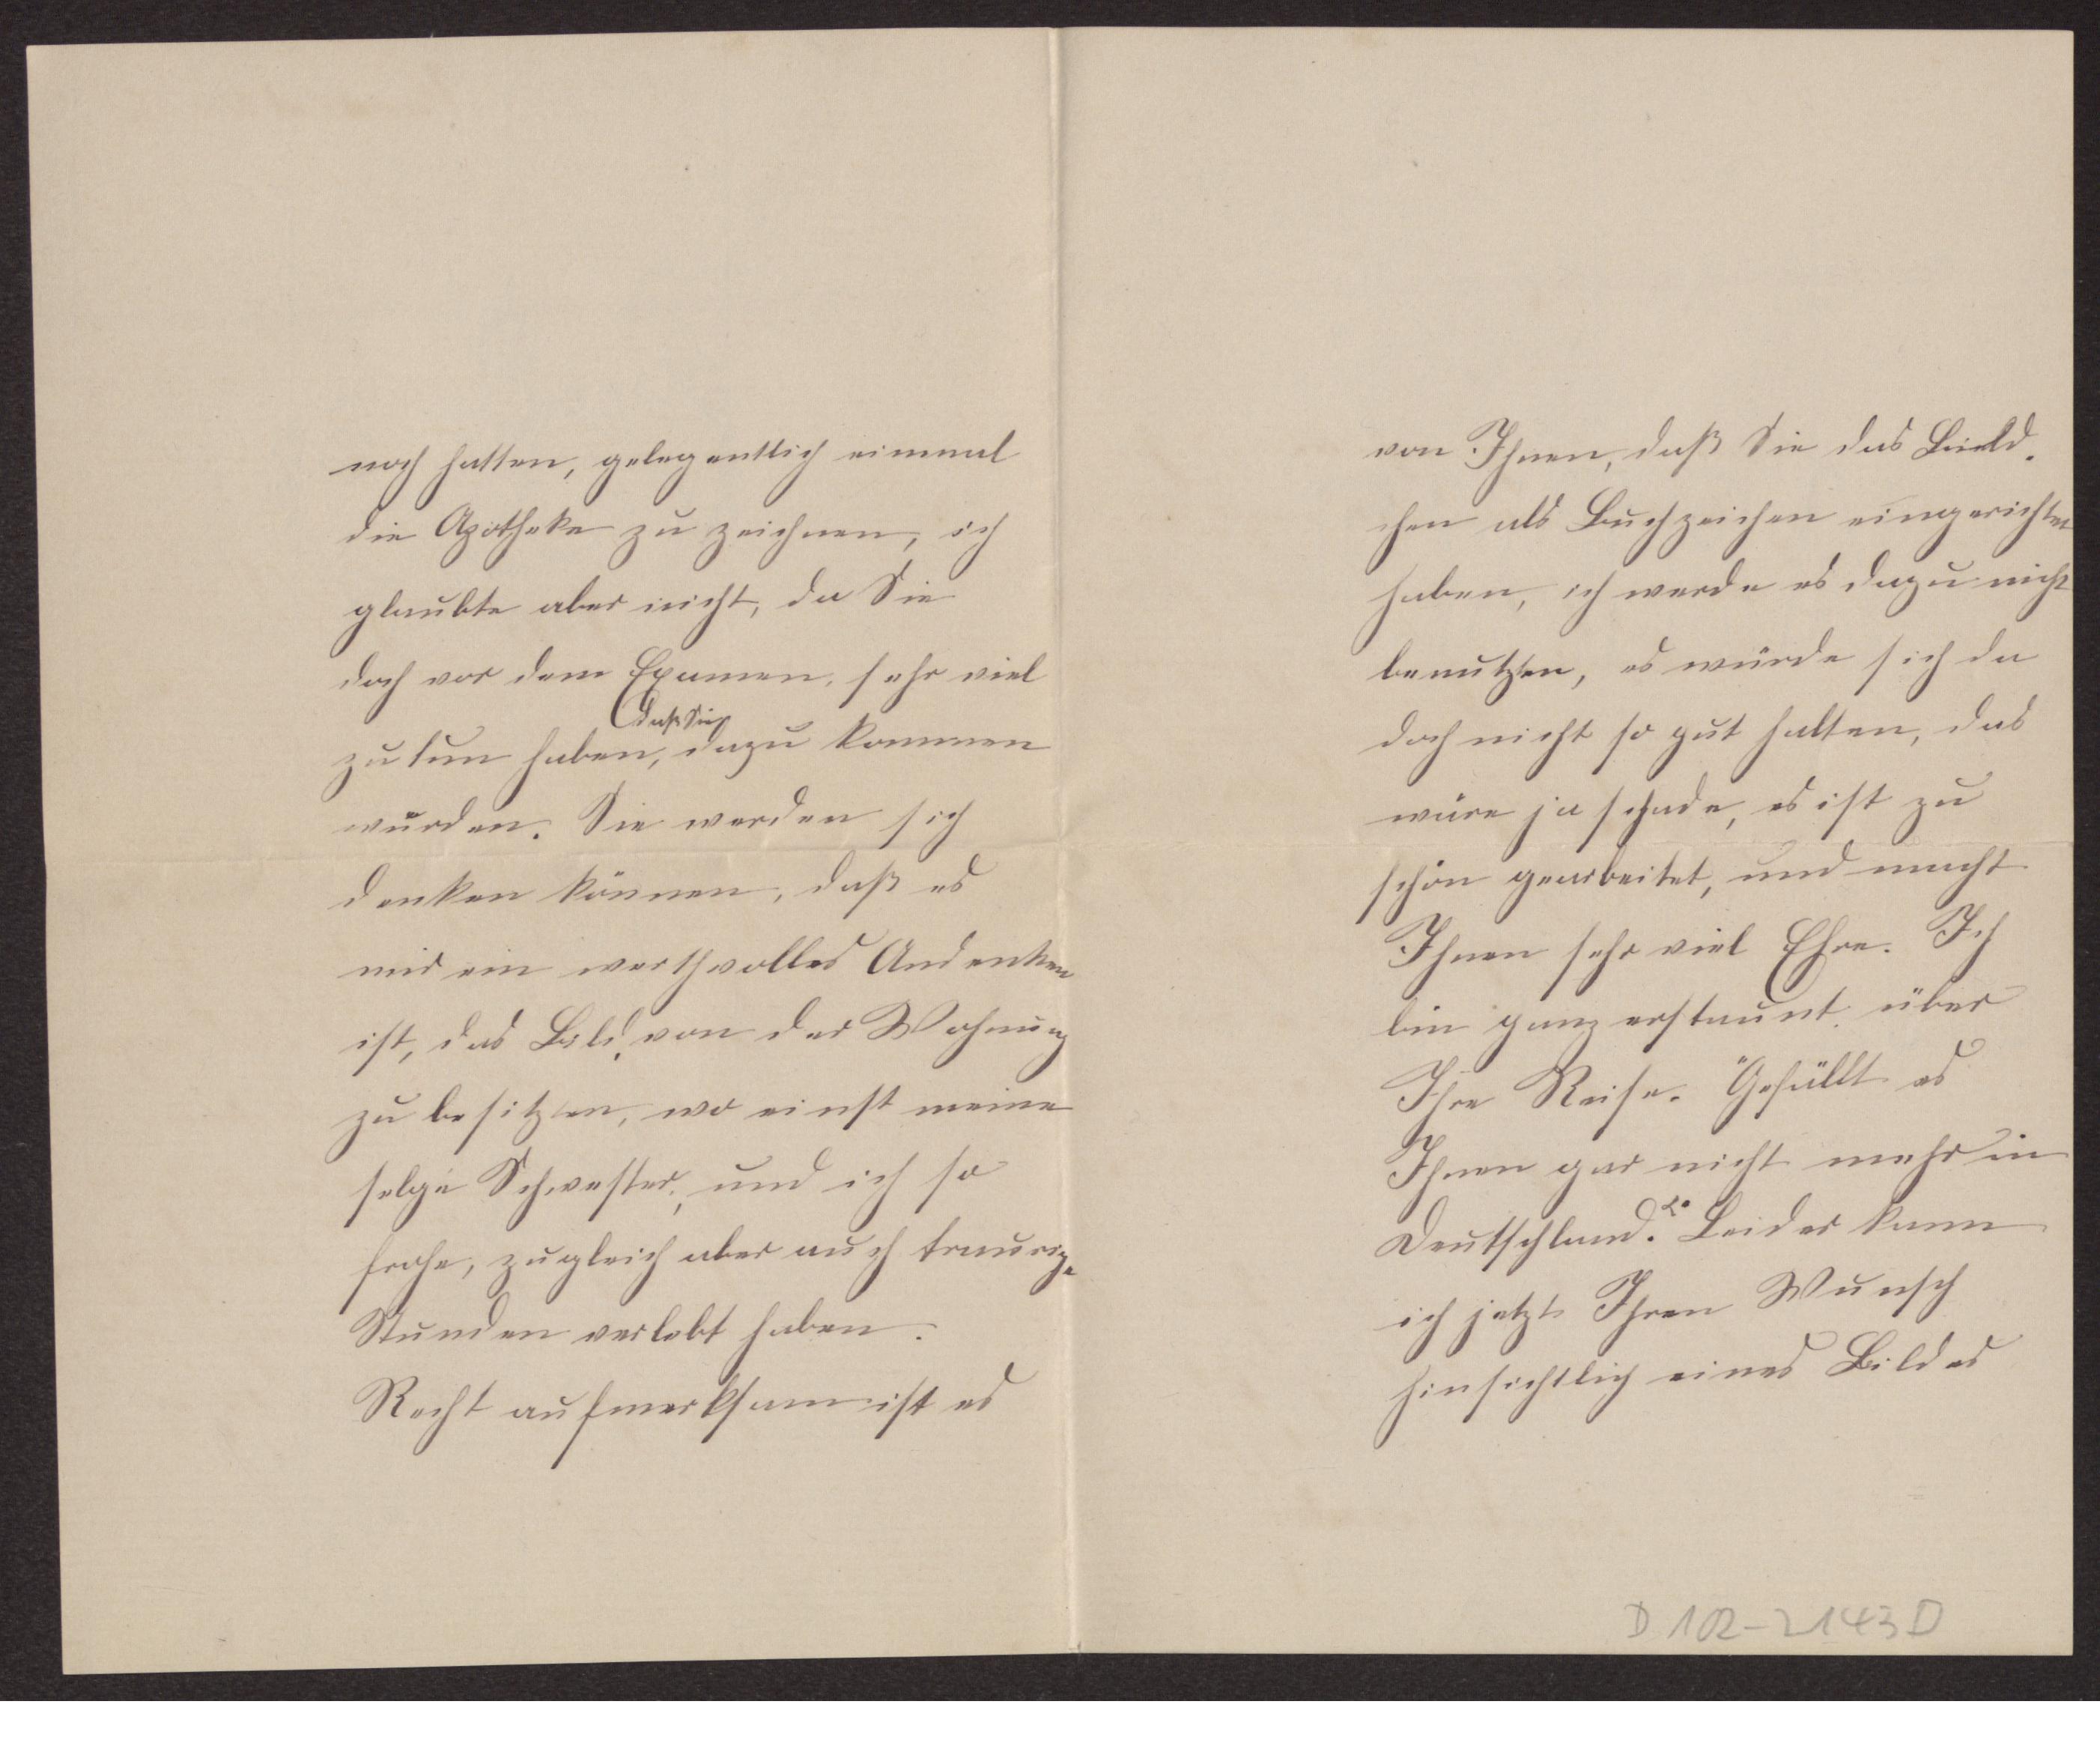 noch hatten, gelegentlich einmal
die Apotheke zu zeichnen, ich
glaubte aber nicht, da Sie
doch vor dem Examen, sehr viel
daß Sie
zu tun haben, dazu kommen
würden. Sie werden sich
denken können, daß es
mir ein werthvolles Andenken
ist, das Bild, von der Wohnung
zu besitzen, wo einst meine
selge Schwester, und ich so
frohe, zugleich aber auch traurige
Stunden verlebt haben.
Recht aufmerksam ist es
von Ihnen, daß Sie das Bild-
chen als Buchzeichen eingerichtet
haben, ich werde es dazu nicht
benutzen, es würde sich da
doch nicht so gut halten, das
wäre ja schade, es ist zu
schön gearbeitet, und macht
Ihnen sehr viel Ehre. Ich
bin ganz erstaunt, über
Ihre Reise. Gefällt es
Ihnen gar nicht mehr in
Deutschland? Leider kann
ich jetzt Ihren Wunsch
hinsichtlich eines Bildes
D 102-2143 D